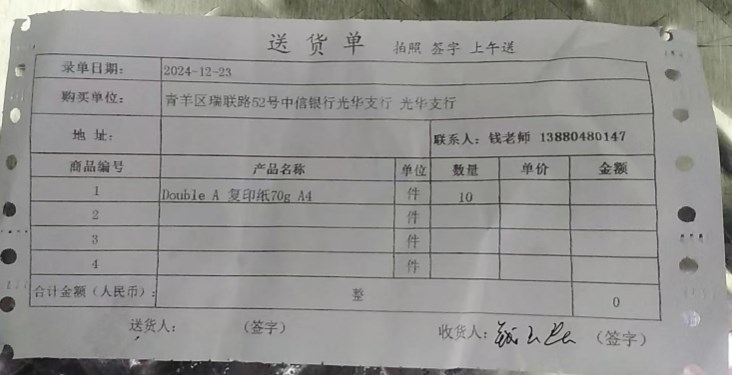 送货单 拍照 签字 上午送
录单日期： 2024-12-23
购买单位： 青羊区瑞联路52号中信银行光华支行 光华支行
地 址： 联系人：钱老师 13880480147
商品编号 产品名称 单位 数量 单价 金额
1 Double A 复印纸70g A4 件 10
2 件
3 件
4 件
合计金额（人民币）： 整 0
送货人： （签字） 收货人： （签字）